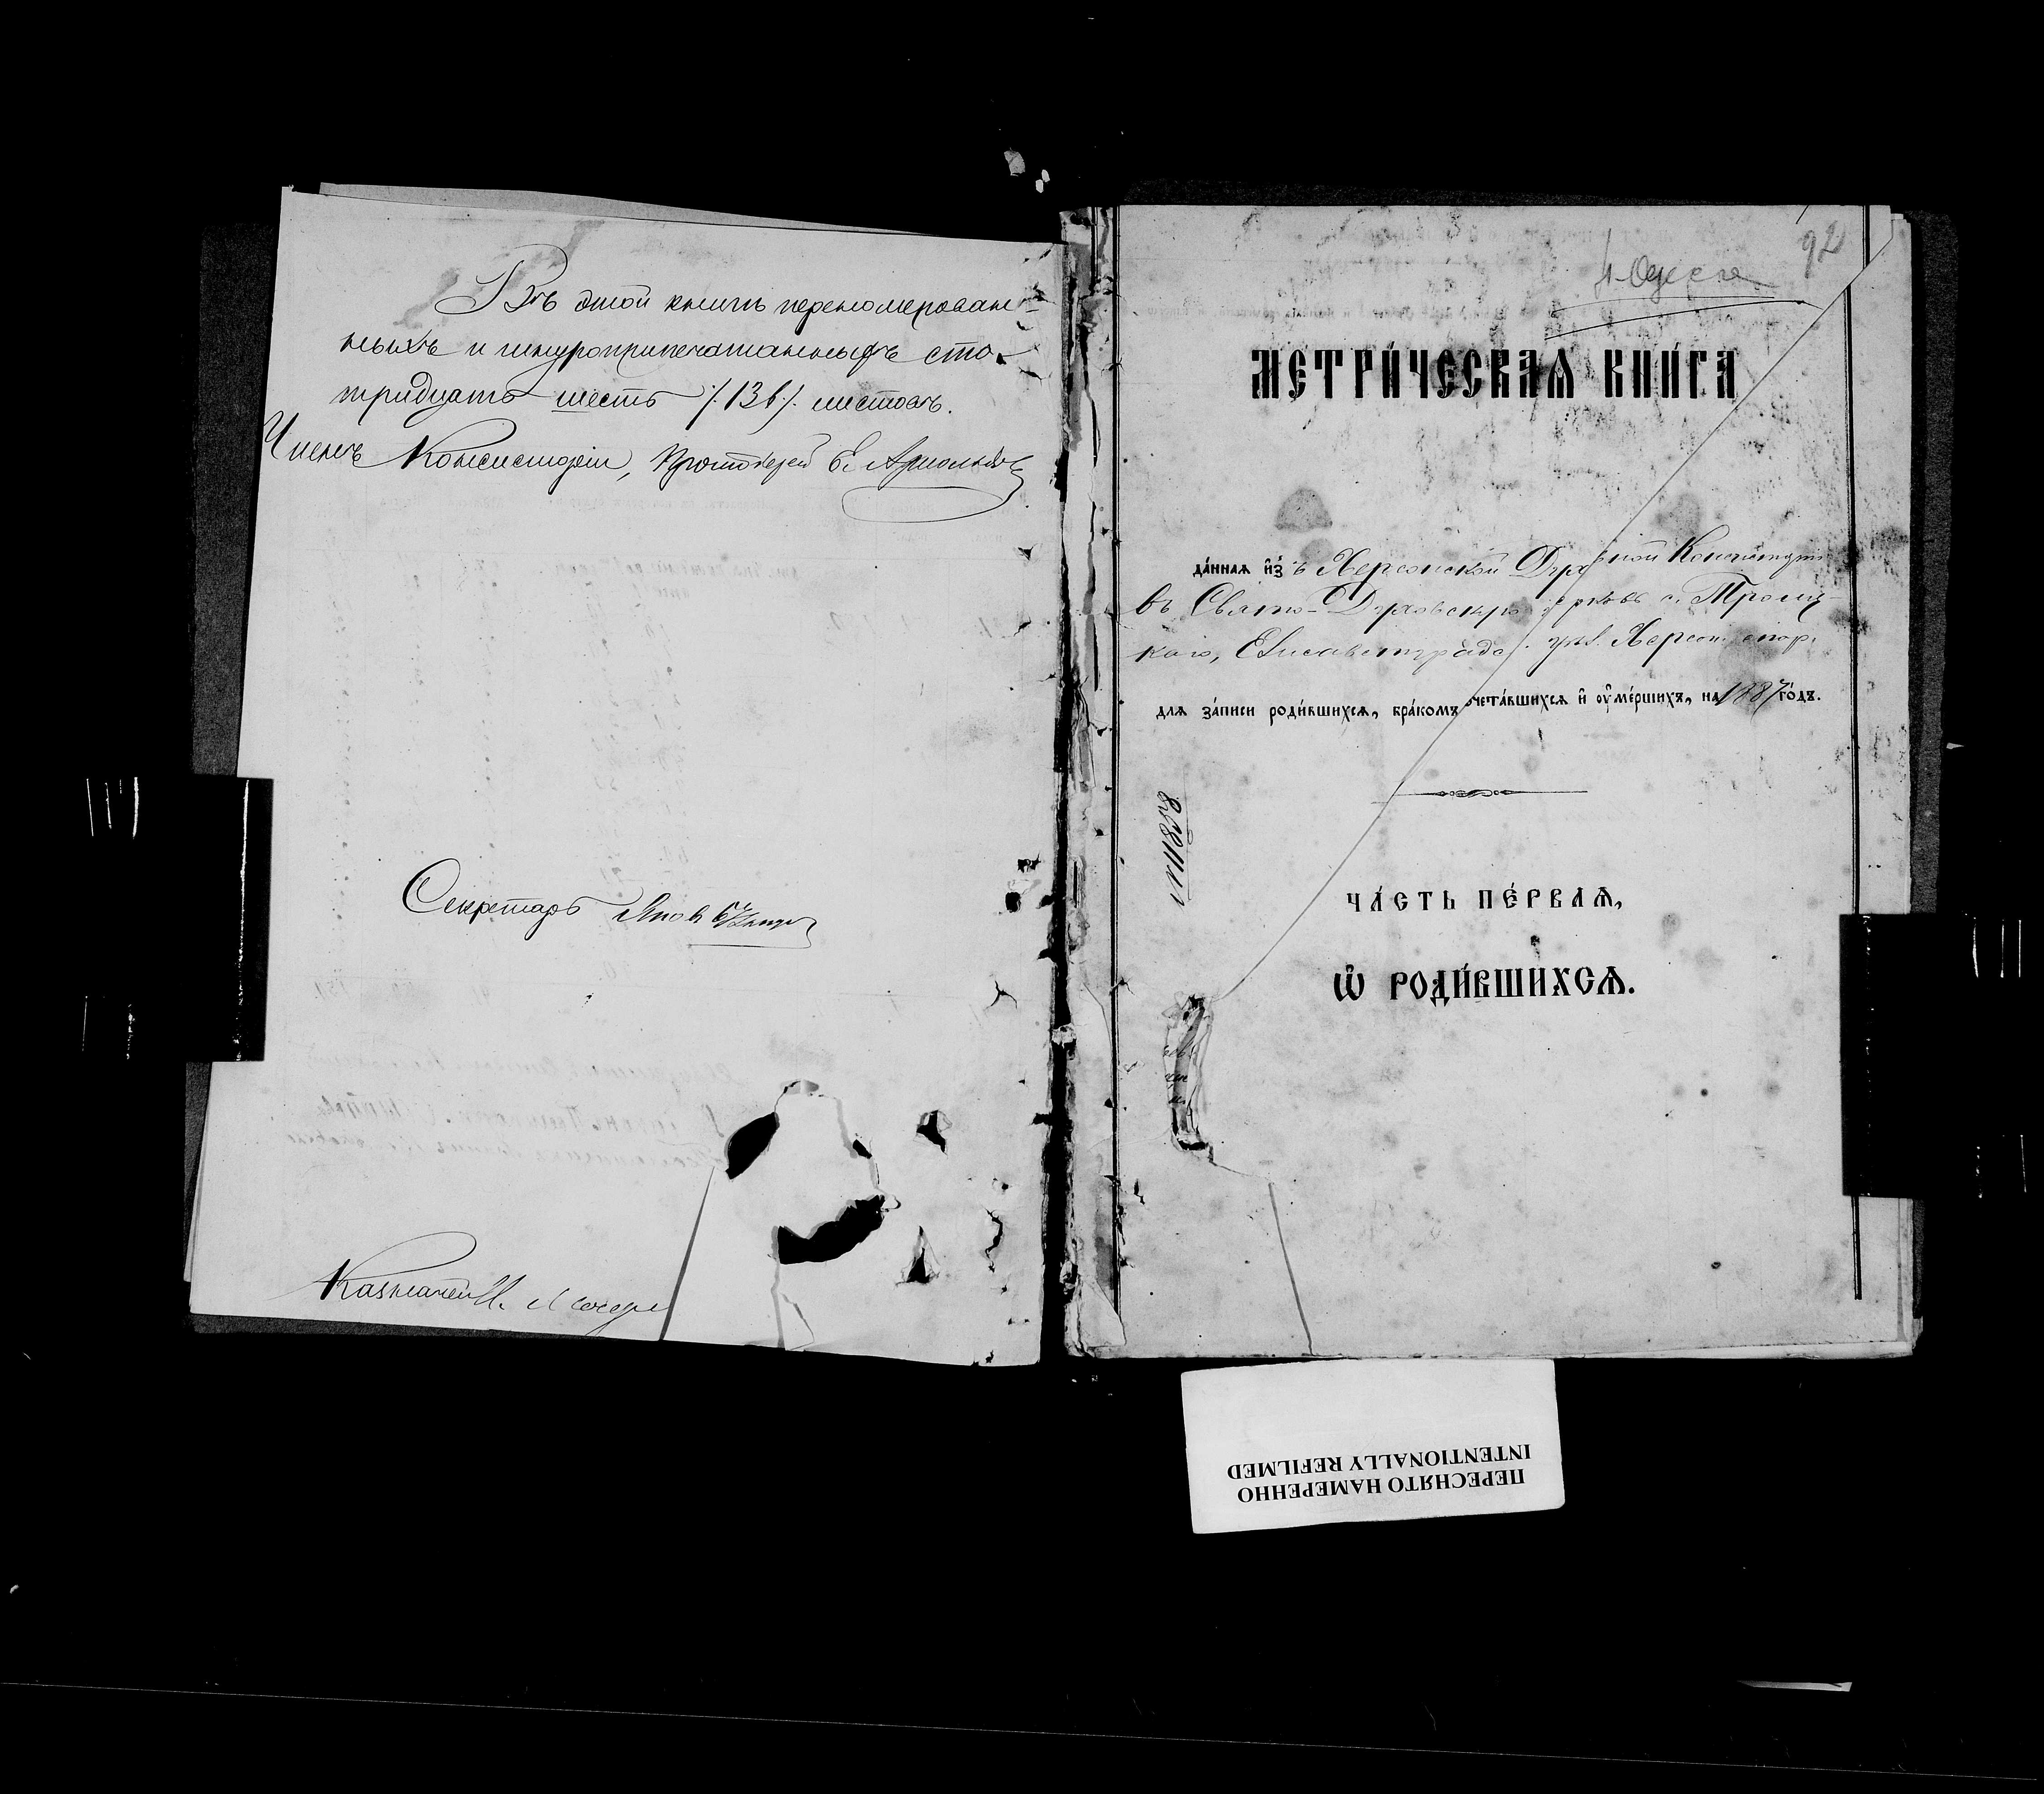 Въ этой книгѣ перенумерован-
ныхъ и шнуроприпечатанныхъ сто
тридцать шесть /.136/. листовъ.
Членъ Консисторіи, Протоіерей Е. Арнольдовъ
Секретарь
Казначей И.
92
г. Одесса
МЕТРИ́ЧЕСКАѦ КНИ́ГА
да́нная и҆з̾ Херсонской Духовной Консисторіи
въ Свято-Духовскую церковь с. Троиц-
каго, Елисаветградс. уѣз. Херсон. епар.
для за́писи роди́вшихсѧ, бра́комъ сочета́вшихсѧ и҆ оу҆ме́ршихъ, на 1887 го́дъ.
№ 11858
ЧА́СТЬ ПЕ́РВАѦ,
Ѽ РОДИ́ВШИХСѦ.
ПЕРЕСНЯТО НАМЕРЕННО
INTENTIONALLY REFILMED